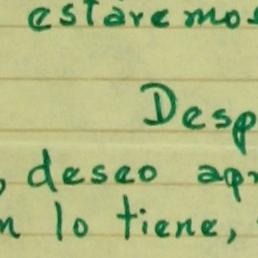 estaremos
Desp
deseo apr
n lo tiene,